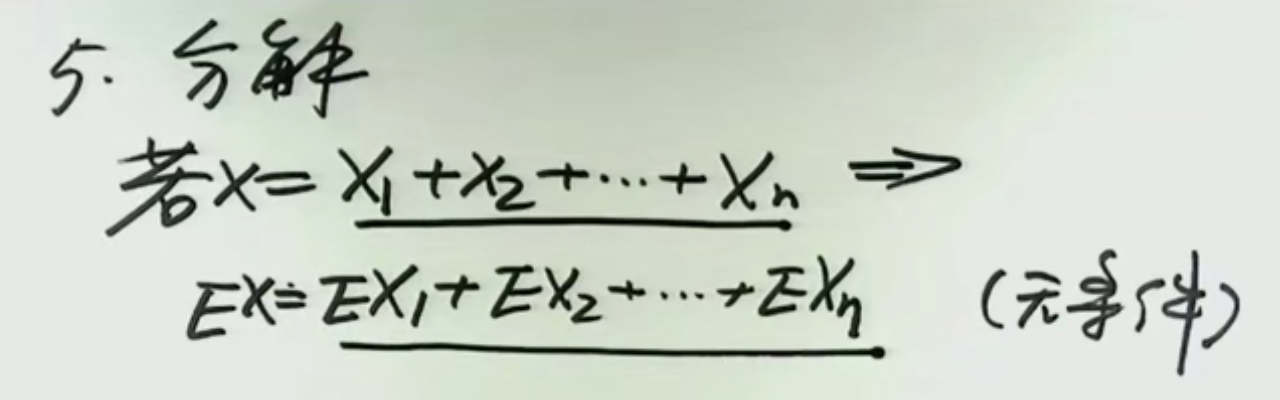 5. 分解
若X=X₁+X₂+⋯+Xₙ ⇒
EX=EX₁+EX₂+⋯+EXₙ (无条件)